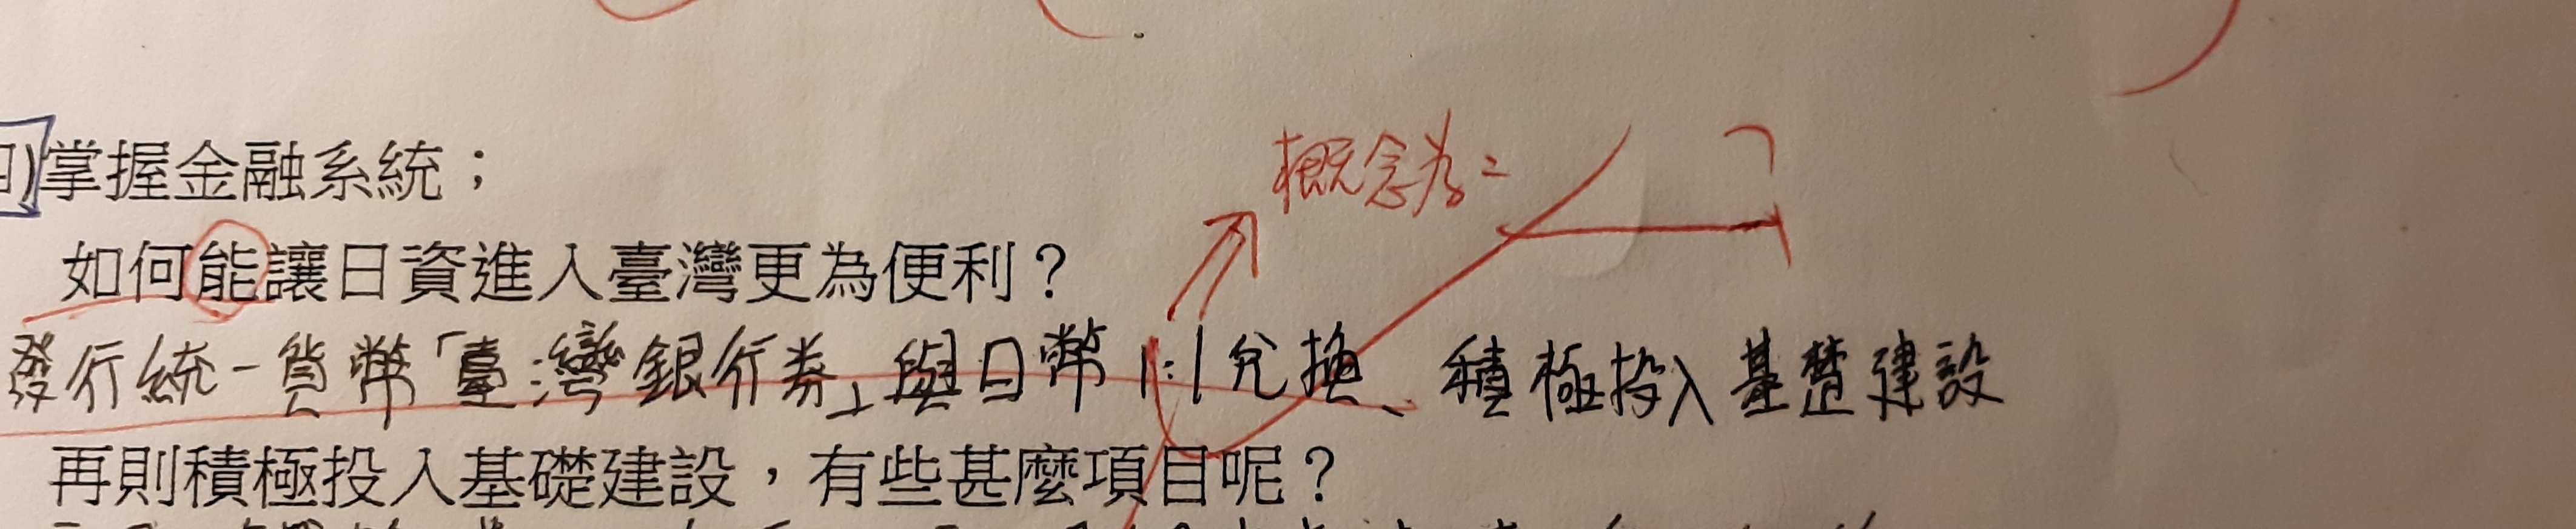 掌握金融系統；
概念為=
如何能讓日資進入臺灣更為便利？
發行統一貨幣「臺灣銀行券」與日幣1:1兌換、積極投入基楚建設
再則積極投入基礎建設，有些甚麼項目呢？